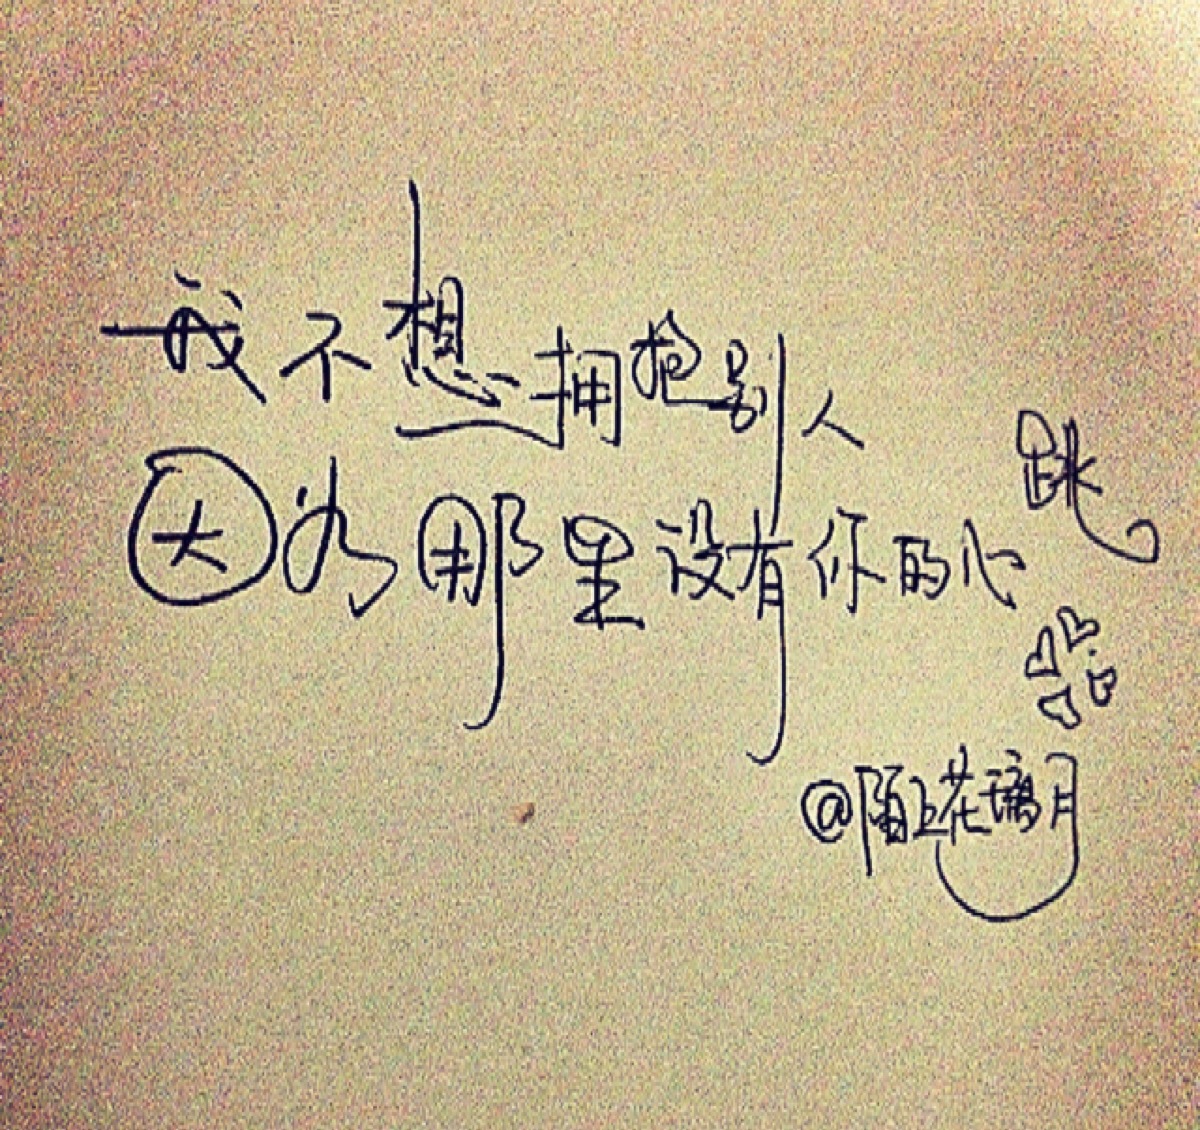 我不想拥抱别人
因为那里没有你的心跳
@陌上花璃月